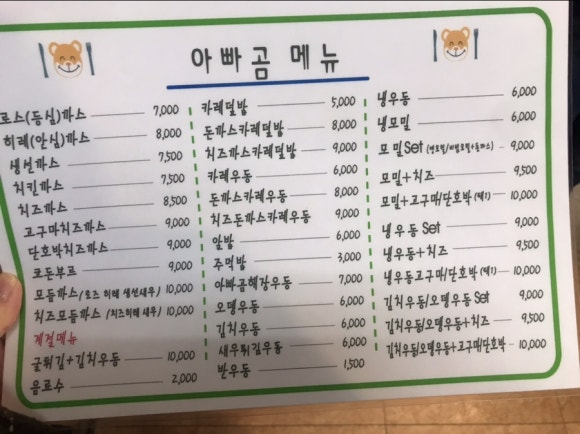 아빠곰 메뉴
로스(등심)까스 7,000
히레(안심)까스 8,000
생선까스 7,500
치킨까스 7,500
치즈까스 8,500
고구마치즈까스 9,000
단호박치즈까스 9,000
코돈부르 9,000
모듬까스 (로즈 히레 생선새우) 10,000
치즈모듬까스 (치즈히레 새우) 10,000
계절메뉴
굴튀김+김치우동 10,000
음료수 2,000
카레덮밥 5,000
돈까스카레덮밥 8,000
치즈까스카레덮밥 9,000
카레우동 6,000
돈까스카레우동 8,000
치즈돈까스카레우동 9,000
알밥 6,000
주먹밥 3,000
아빠곰해장우동 7,000
오뎅우동 6,000
김치우동 6,000
새우튀김우동 6,000
반우동 1,500
냉우동 6,000
냉모밀 6,000
모밀Set 9,000
모밀+치즈 9,500
모밀+고구마/단호박 (택1) 10,000
냉우동 Set 9,000
냉우동+치즈 9,500
냉우동고구마/단호박 (택1) 10,000
김치우동/오뎅우동 Set 9,000
김치우동/오뎅우동+치즈 9,500
김치우동/오뎅우동+고구마/단호박 10,000